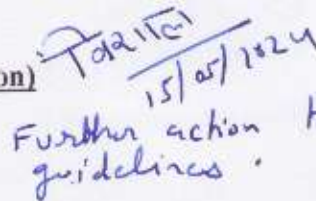 on)
15/05/2024
Further action
guidelines.